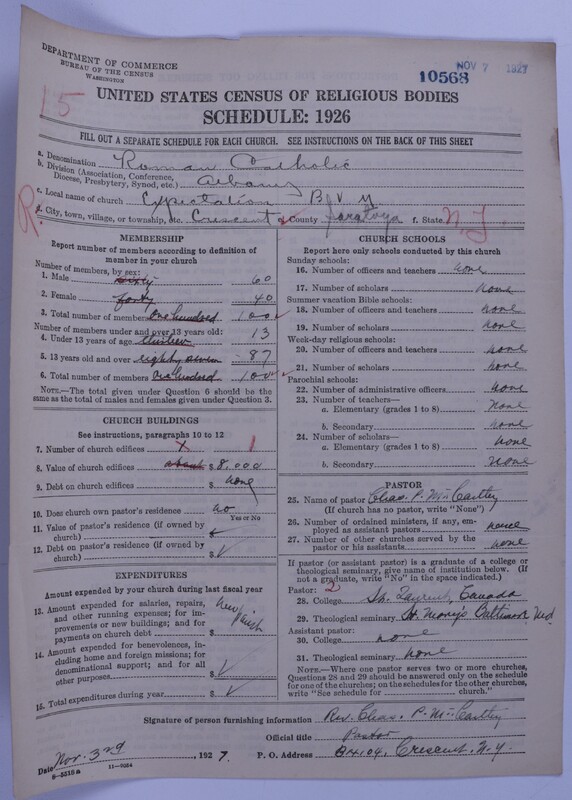 DEPARTMENT OF COMMERCE
BUREAU OF THE CENSUS
WASHINGTON
10568
NOV 7 1927
15
UNITED STATES CENSUS OF RELIGIOUS BODIES
SCHEDULE: 1926
FILL OUT A SEPARATE SCHEDULE FOR EACH CHURCH. SEE INSTRUCTIONS ON THE BACK OF THIS SHEET
a. Denomination Roman Catholic
b. Division (Association, Conference,
Diocese, Presbytery, Synod, etc.) Albany
c. Local name of church Expectation B V M
R
d. City, town, village, or township, etc. Crescent e. County Saratoga f. State N Y
MEMBERSHIP
Report number of members according to definition of
member in your church
Number of members, by sex:
1. Male sixty 60
2. Female forty 40
3. Total number of members one hundred 100
Number of members under and over 13 years old:
4. Under 13 years of age thirteen 13
5. 13 years old and over eighty seven 87
6. Total number of members one hundred 100
NOTE.—The total given under Question 6 should be the
same as the total of males and females given under Question 3.
CHURCH BUILDINGS
See instructions, paragraphs 10 to 12
7. Number of church edifices x 1
8. Value of church edifices about $8,000
9. Debt on church edifices $ none
10. Does church own pastor's residence no
Yes or No
11. Value of pastor's residence (if owned by
church) $
12. Debt on pastor's residence (if owned by
church) $
EXPENDITURES
Amount expended by your church during last fiscal year
13. Amount expended for salaries, repairs,
and other running expenses; for im-
provements or new buildings; and for
payments on church debt $
new parish
14. Amount expended for benevolences, in-
cluding home and foreign missions; for
denominational support; and for all
other purposes $
15. Total expenditures during year $
CHURCH SCHOOLS
Report here only schools conducted by this church
Sunday schools:
16. Number of officers and teachers none
17. Number of scholars none
Summer vacation Bible schools:
18. Number of officers and teachers none
19. Number of scholars none
Week-day religious schools:
20. Number of officers and teachers none
21. Number of scholars none
Parochial schools:
22. Number of administrative officers none
23. Number of teachers—
a. Elementary (grades 1 to 8) none
b. Secondary none
24. Number of scholars—
a. Elementary (grades 1 to 8) none
b. Secondary none
PASTOR
25. Name of pastor Chas. P. McCarthy
(If church has no pastor, write "None")
26. Number of ordained ministers, if any, em-
ployed as assistant pastors none
27. Number of other churches served by the
pastor or his assistants none
If pastor (or assistant pastor) is a graduate of a college or
theological seminary, give name of institution below. (If
not a graduate, write "No" in the space indicated.)
Pastor: 2
28. College St. Laurent, Canada
29. Theological seminary St. Mary's Baltimore Md
Assistant pastor:
30. College none
31. Theological seminary none
NOTE.—Where one pastor serves two or more churches,
Questions 28 and 29 should be answered only on the schedule
for one of the churches; on the schedules for the other churches,
write "See schedule for church."
Signature of person furnishing information Rev. Chas. P. McCarthy
Official title Pastor
Date Nov. 3rd, 1927. P. O. Address Crescent, N. Y.
8—5518a 11—9054